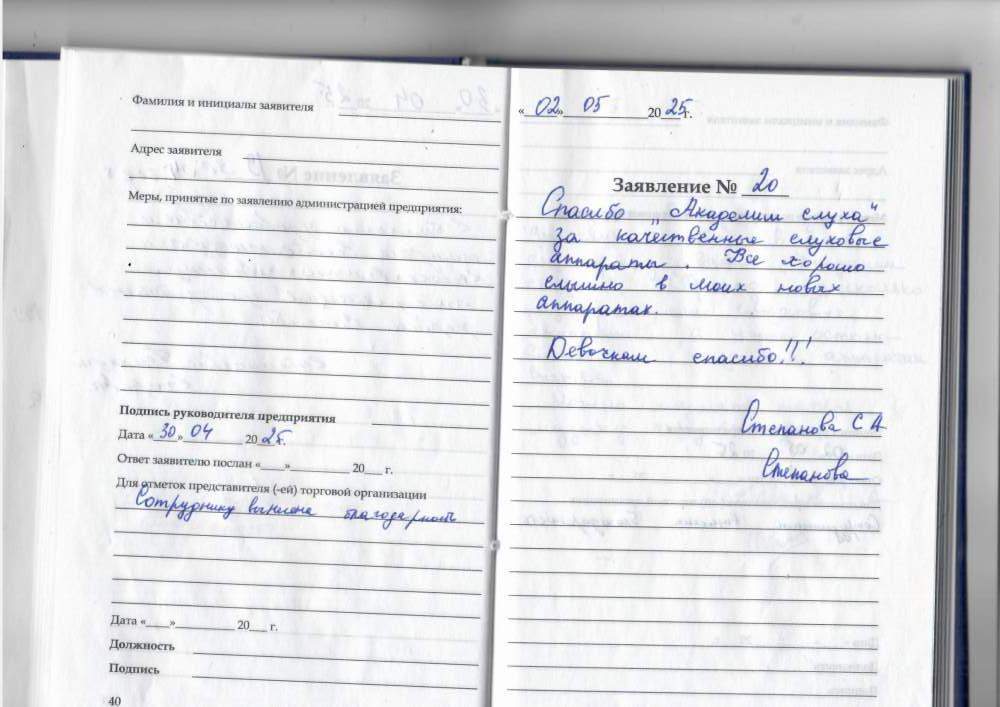 Фамилия и инициалы заявителя
Адрес заявителя
Меры, принятые по заявлению администрацией предприятия:
Подпись руководителя предприятия
Дата «30» 04 2025г.
Ответ заявителю послан «___»__________ 20___ г.
Для отметок представителя (-ей) торговой организации
Сотруднику вынесена благодарность
Дата «___»__________ 20___ г.
Должность
Подпись
40
«02» 05 2025г.
Заявление № 20
Спасибо „Академии слуха"
за качественные слуховые
аппараты. Все хорошо
слышно в моих новых
аппаратах.
Девочкам спасибо!!!
Степанова С А
Степанова